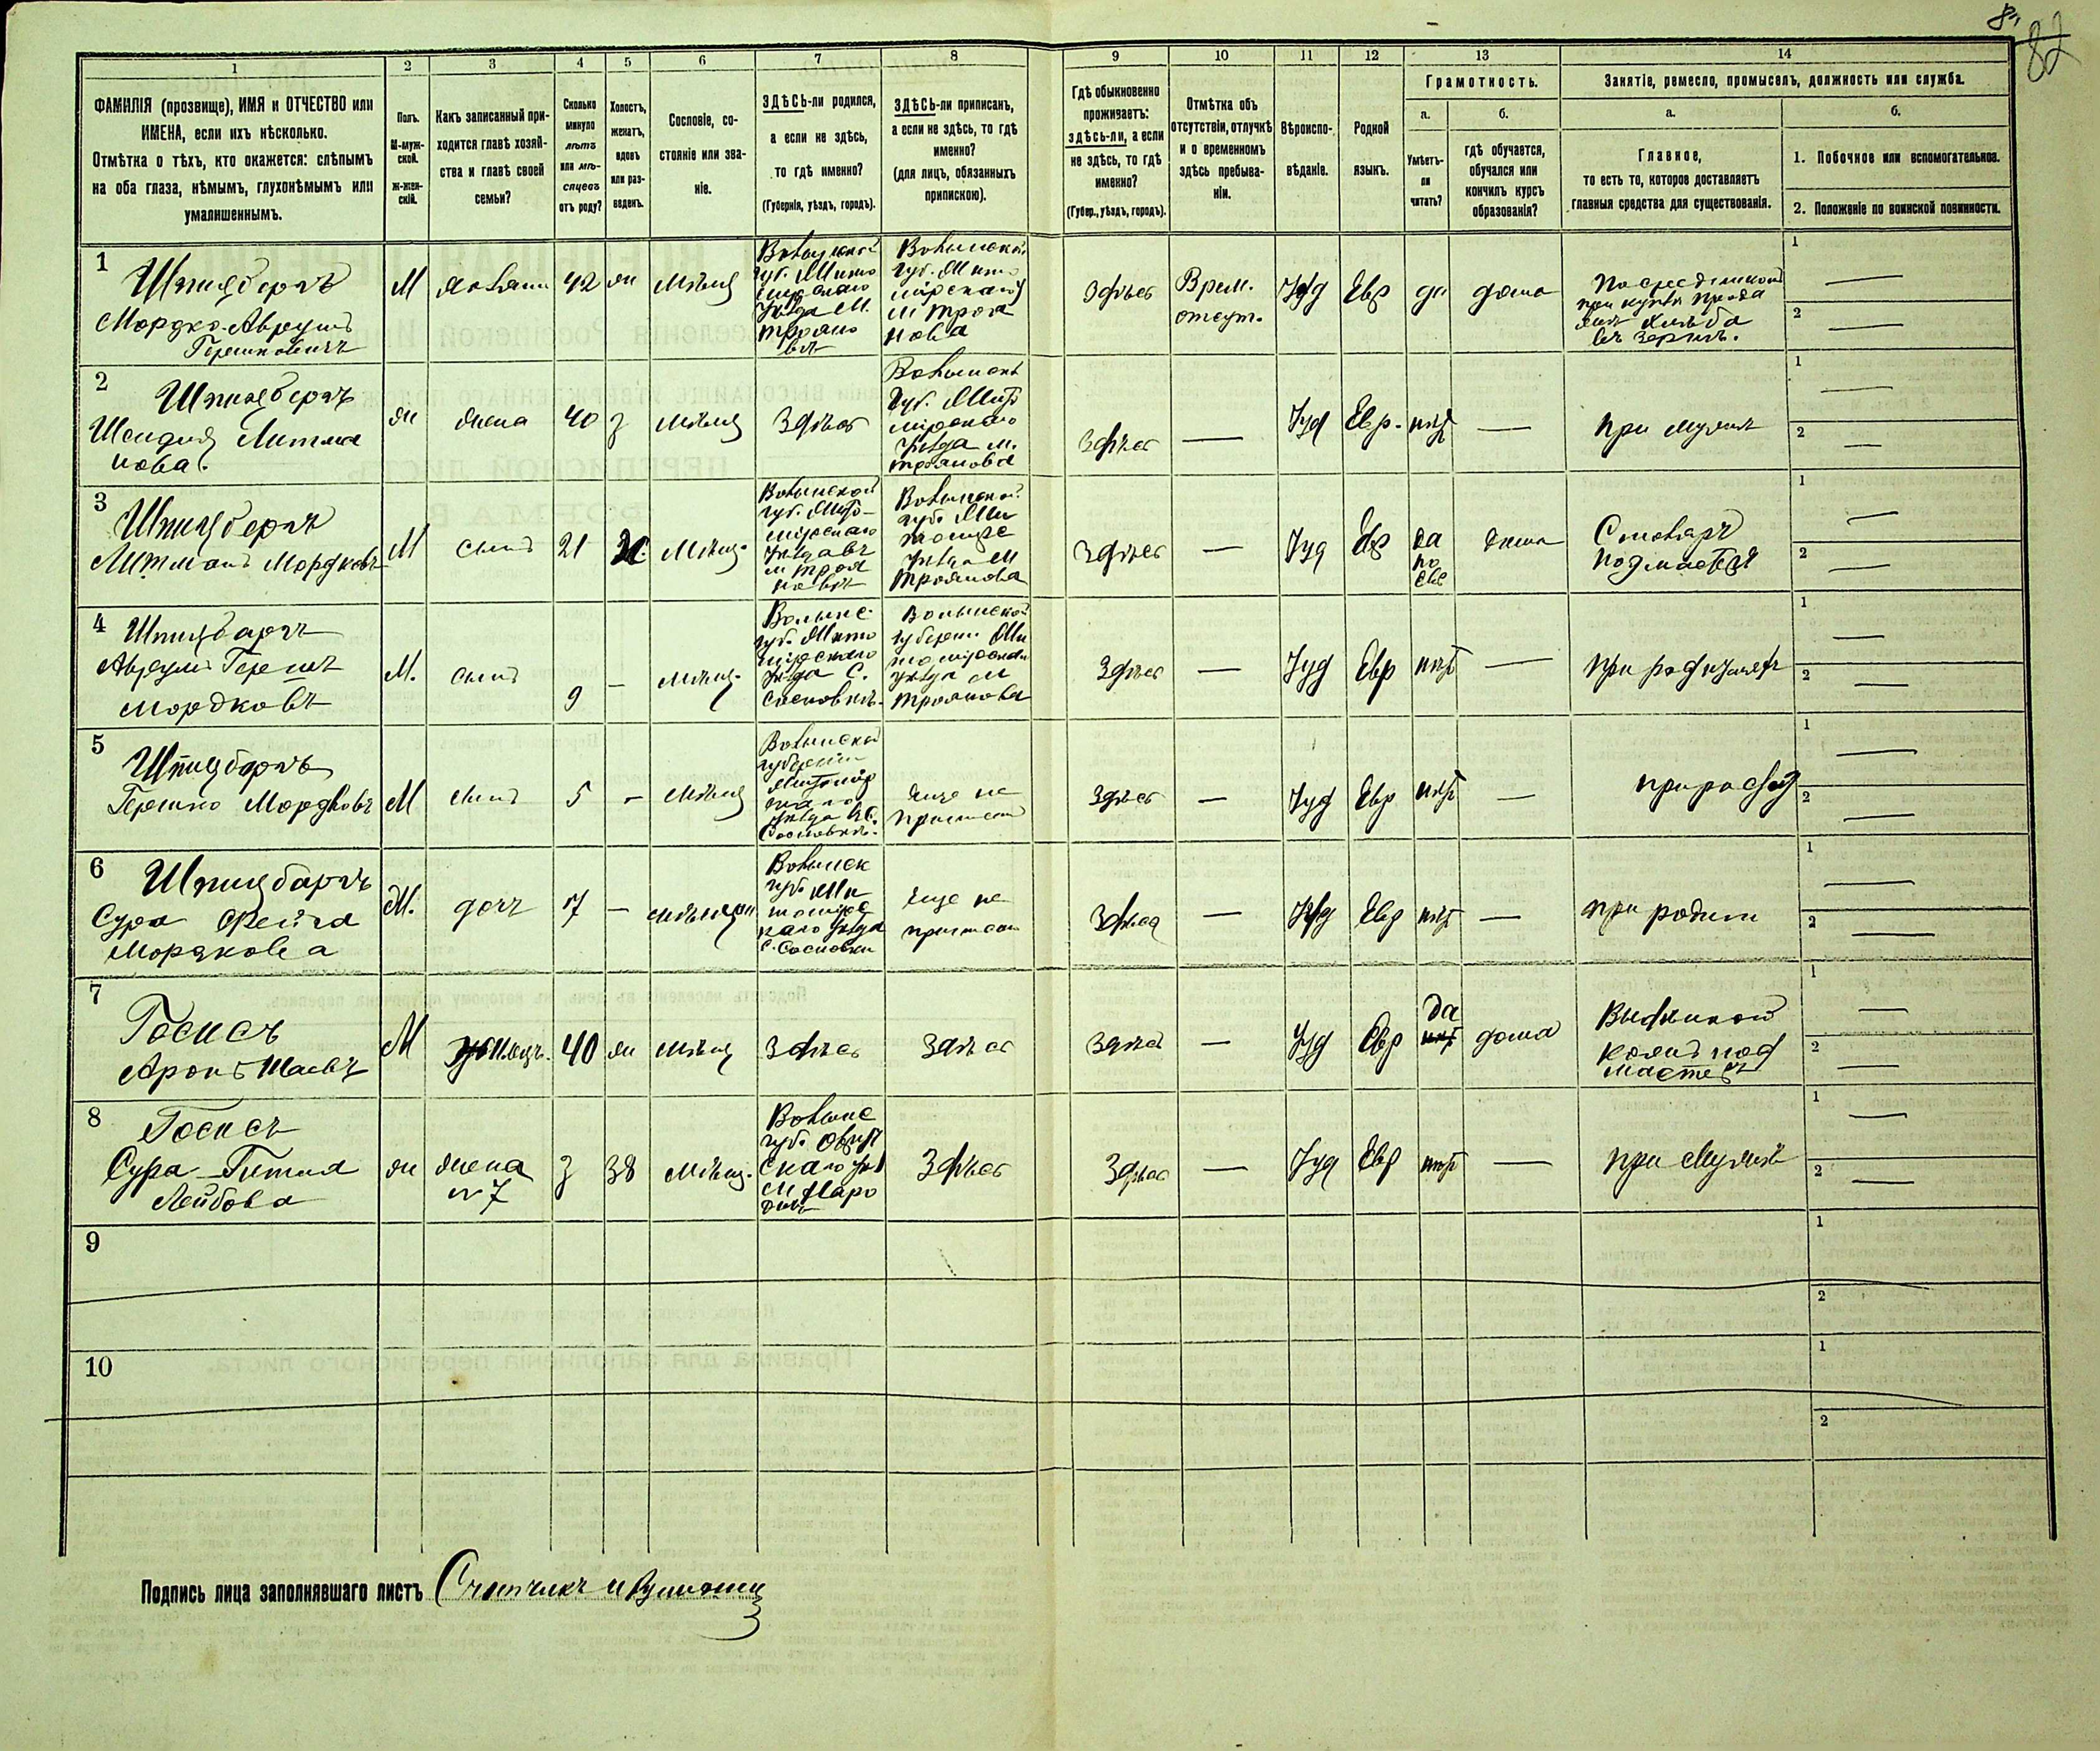 82
1
2
3
4
5
6
7
8
9
10
11
12
13
14
ФАМИЛІЯ (прозвище), ИМЯ и ОТЧЕСТВО или
ИМЕНА, если ихъ нѣсколько.
Отмѣтка о тѣхъ, кто окажется: слѣпымъ
на оба глаза, нѣмымъ, глухонѣмымъ или
умалишеннымъ.
Полъ.
М-муж-
ской.
Ж-жен-
скій.
Какъ записанный при-
ходится главѣ хозяй-
ства и главѣ своей
семьи?
Сколько
минуло
лѣтъ
или мѣ-
сяцевъ
отъ роду?
Холостъ,
женатъ,
вдовъ
или раз-
веденъ.
Сословіе, со-
стояніе или зва-
ніе.
ЗДѢСЬ-ли родился,
а если не здѣсь,
то гдѣ именно?
(Губернія, уѣздъ, городъ).
ЗДѢСЬ-ли приписанъ,
а если не здѣсь, то гдѣ
именно?
(для лицъ, обязанныхъ
припискою).
Гдѣ обыкновенно
проживаетъ:
здѣсь-ли, а если
не здѣсь, то гдѣ
именно?
(Губер., уѣздъ, городъ).
Отмѣтка объ
отсутствіи, отлучкѣ
и о временномъ
здѣсь пребыва-
ніи.
Вѣроиспо-
вѣданіе.
Родной
языкъ.
Грамотность.
а.
Умѣетъ-
ли
читать?
б.
гдѣ обучается,
обучался или
кончилъ курсъ
образованія?
Занятіе, ремесло, промыселъ, должность или служба.
а.
Главное,
то есть то, которое доставляетъ
главныя средства для существованія.
б.
1. Побочное или вспомогательное.
2. Положеніе по воинской повинности.
1
Шпицбергъ
Мордко-Аврумъ
Гершковичъ
М
хозяинъ
42
ж
мѣщ
Волынской
губ. Жито
мірскаго
уѣзда М.
Трояно
вѣ
Волынской
губ. Жито
мірскаго
м Троя
нова
Здѣсь
Врем.
отсут.
Іуд
Евр
да
дома
Посредникомъ
при куплѣ прода
жѣ хлѣба
въ зернѣ.
1
2
2
Шпицбергъ
Шейндля Литма
нова.
ж
жена
40
з
мѣщ
Здѣсь
Волынск
губ. Жито
мірскаго
уѣзда м.
Троянова
Здѣсь
Іуд
Евр.
нѣт
при мужѣ
1
2
3
Шпицбергъ
Литманъ Мордковъ
М
сынъ
21
х
мѣщ.
Волынской
губ. Жито-
мірскаго
уѣзда въ
м Троя
новѣ
Волынской
губ. Жи
томірс
уѣзда М
Троянова
Здѣсь
Іуд
Евр
да
по
евр
дома
Столяръ
подмастер
1
2
4
Шпицбергъ
Аврумъ Гершъ
Мордковъ
М.
сынъ
9
мѣщ.
Волынс
губ. Жито
мірскаго
уѣзда С.
Сосновкѣ.
Волынской
губерніи Жи
томірскаго
уѣзда м
Троянова
Здѣсь
Іуд
Евр
нѣт
при родителяхъ
1
2
5
Шпицбергъ
Гершко Мордковъ
М
сынъ
5
мѣщ
Волынской
губерніи
Житомір
скаго
уѣзда С.
Сосновкѣ.
еще не
приписанъ
Здѣсь
Іуд
Евр
нѣт
при род
1
2
6
Шпицбергъ
Сура Фейга
Мордкова
дочь
7
Волынск
губ. Жи
томірс
каго уѣзда
с. Сосновки
еще не
приписан
Здѣсь
Іуд
Евр
нѣт
при родит
1
2
7
Аронъ
М
40
ж
мѣщ
Здѣсь
Здѣсь
Здѣсь
Іуд
Евр
да
дома
подмастер
1
2
8
Сура-Гитля
Лейбова
ж
жена
№ 7
з
38
мѣщ.
Волынс
губ. Овруч
скаго уѣз
м Наро
дичи
Здѣсь
Здѣсь
Іуд
Евр
нѣт
при мужѣ
1
2
9
1
2
10
1
2
Подпись лица заполнявшаго листъ Счетчикъ